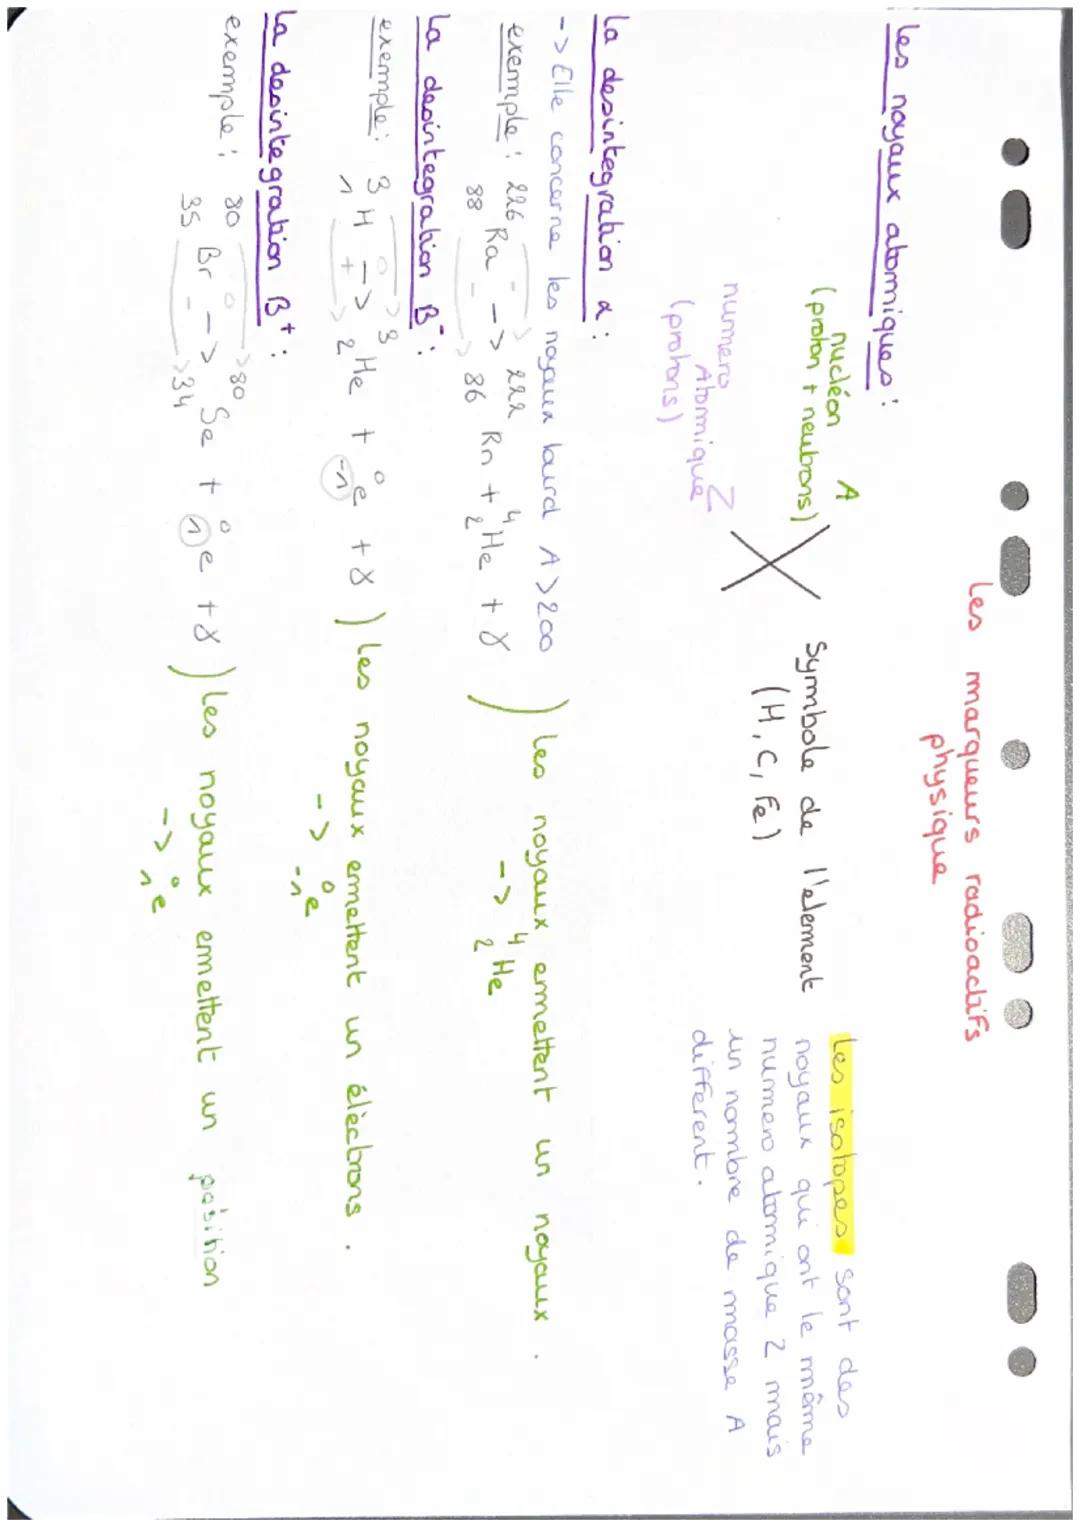 Les marqueurs radioactifs
physique
Les noyaux atomiques :
nucléon A
(proton + neutrons)
X
numero Z
Atomique
(protons)
Symbole de l'element
(H, C, Fe)
Les isotopes sont des
noyaux qui ont le même
numero atomique Z mais
un nombre de masse A
different.
La desintegration α :
-> Elle concerne les noyaux lourd A > 200
exemple : 226 88 Ra -> 222 86 Rn + 4 2 He + γ
) Les noyaux emettent un noyaux.
-> 4 2 He
La desintegration B⁻ :
exemple : 3 1 H -> 3 2 He + 0 -1 e + γ
0
+
) Les noyaux emettent un électrons.
-> 0 -1 e
La desintegration B⁺ :
exemple : 80 35 Br -> 80 34 Se + 0 1 e + γ
0
-
) Les noyaux emettent un position
-> 0 1 e